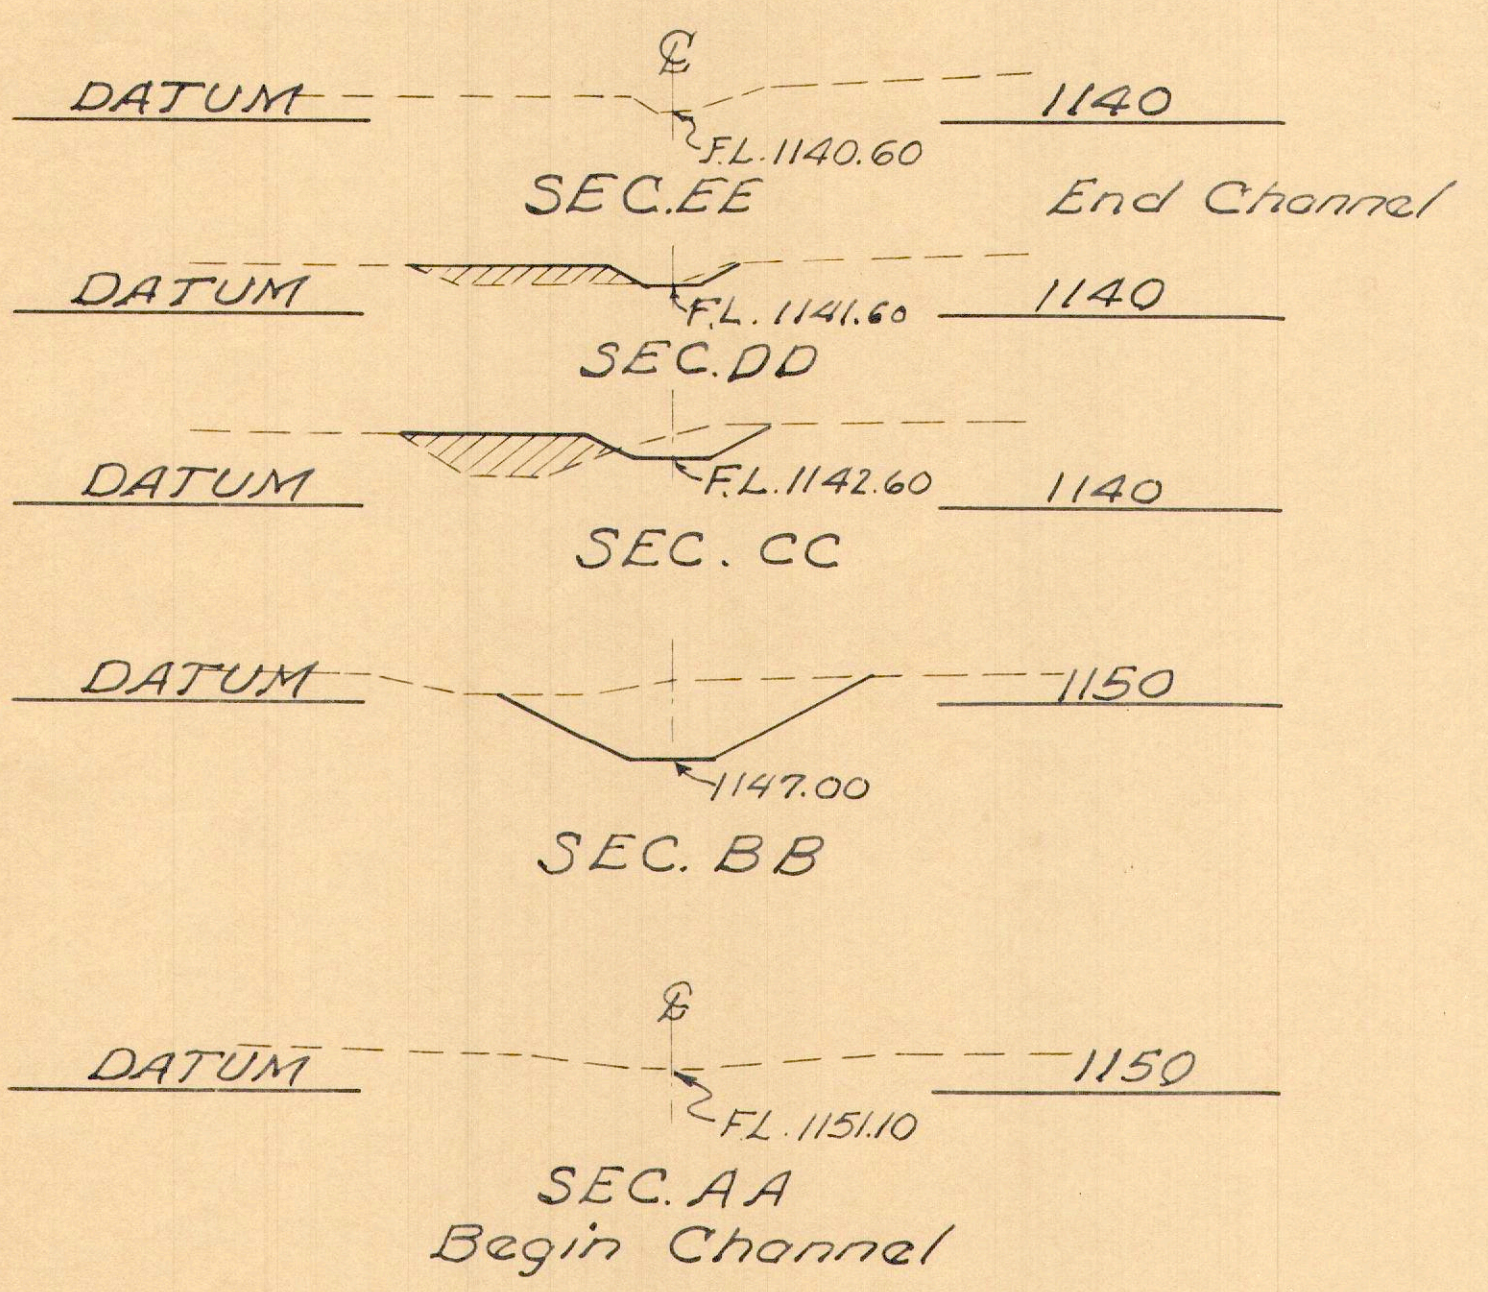 ℄
DATUM 1140
F.L. 1140.60
SEC. EE End Channel
DATUM 1140
F.L. 1141.60
SEC. DD
DATUM F.L. 1142.60 1140
SEC. CC
DATUM 1150
1147.00
SEC. BB
℄
DATUM 1150
F.L. 1151.10
SEC. AA
Begin Channel